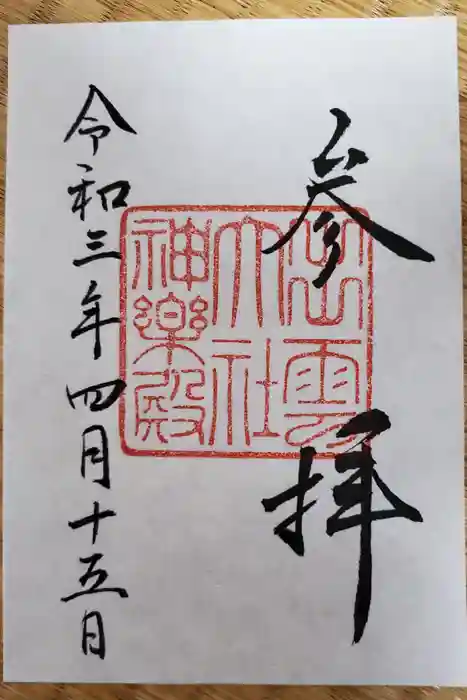 参拝
出雲
大社
神楽殿
令和三年四月十五日